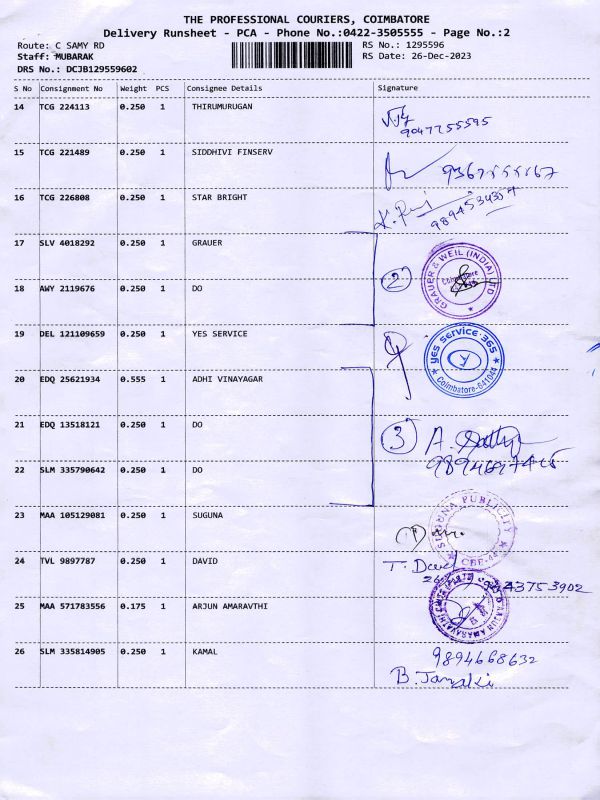 THE PROFESSIONAL COURIERS, COIMBATORE
Delivery Runsheet - PCA - Phone No.:0422-3505555 - Page No.:2
Route: C SAMY RD
RS No.: 1295596
Staff: MUBARAK
RS Date: 26-Dec-2023
DRS No.: DCJB129559602
S No Consignment No Weight PCS Consignee Details Signature
14 TCG 224113 0.250 1 THIRUMURUGAN
9047755595
15 TCG 221489 0.250 1 SIDDHIVI FINSERV
16 TCG 226808 0.250 1 STAR BRIGHT
17 SLV 4018292 0.250 1 GRAUER
GRAUER & WEIL (INDIA) LTD
Coimbatore
18 AWY 2119676 0.250 1 DO
2
19 DEL 121109659 0.250 1 YES SERVICE
YES SERVICE-365
Y
Coimbatore-641044
20 EDQ 25621934 0.555 1 ADHI VINAYAGAR
21 EDQ 13518121 0.250 1 DO
3 A.
22 SLM 335790642 0.250 1 DO
23 MAA 105129081 0.250 1 SUGUNA
SUGUNA PUBLICITY
24 TVL 9897787 0.250 1 DAVID
T. David
9843753902
25 MAA 571783556 0.175 1 ARJUN AMARAVTHI
26 SLM 335814905 0.250 1 KAMAL
9894668632
B. Janaki